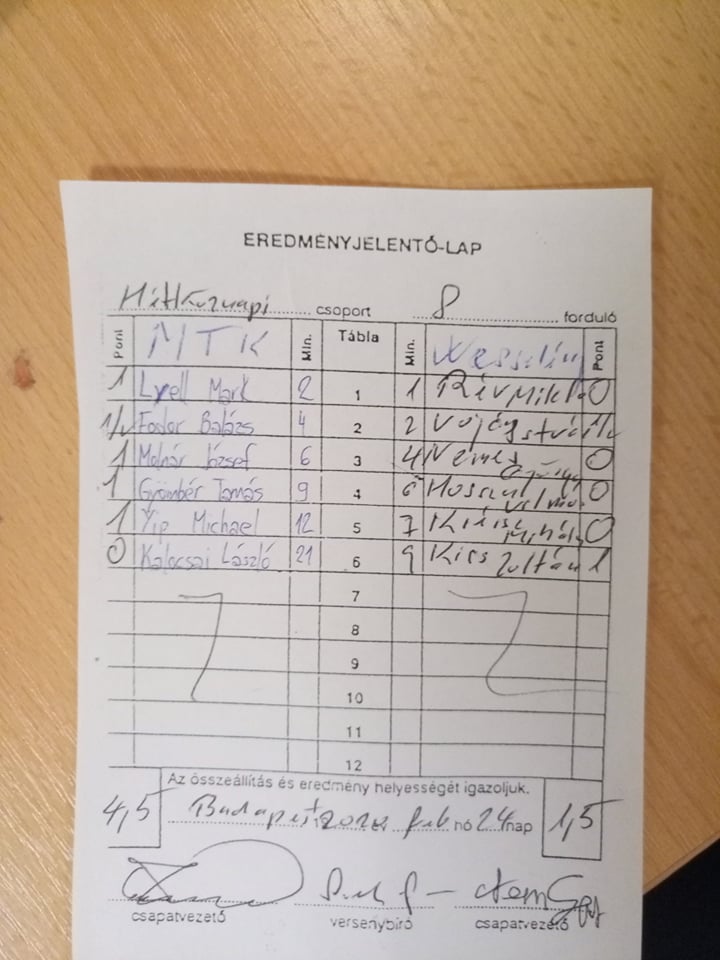 EREDMÉNYJELENTŐ-LAP
Hétköznapi csoport 8 forduló
Pont MTK Min. Tábla Min. Pont
1 Lyell Mark 2 1 1 Rév Mikl 0
1/2 Fodor Balázs 4 2 2 1/2
1 Molnár József 6 3 4 Nemes 0
1 Grömbér Tamás 9 4 6 0
1 Yip Michael 12 5 7 Mihály 0
0 Kalocsai László 21 6 9 Kiss Zoltán 1
7
8
9
10
11
12
Az összeállítás és eredmény helyességét igazoljuk.
4,5 Budapest feb hó 24 nap 1,5
csapatvezető versenybíró csapatvezető